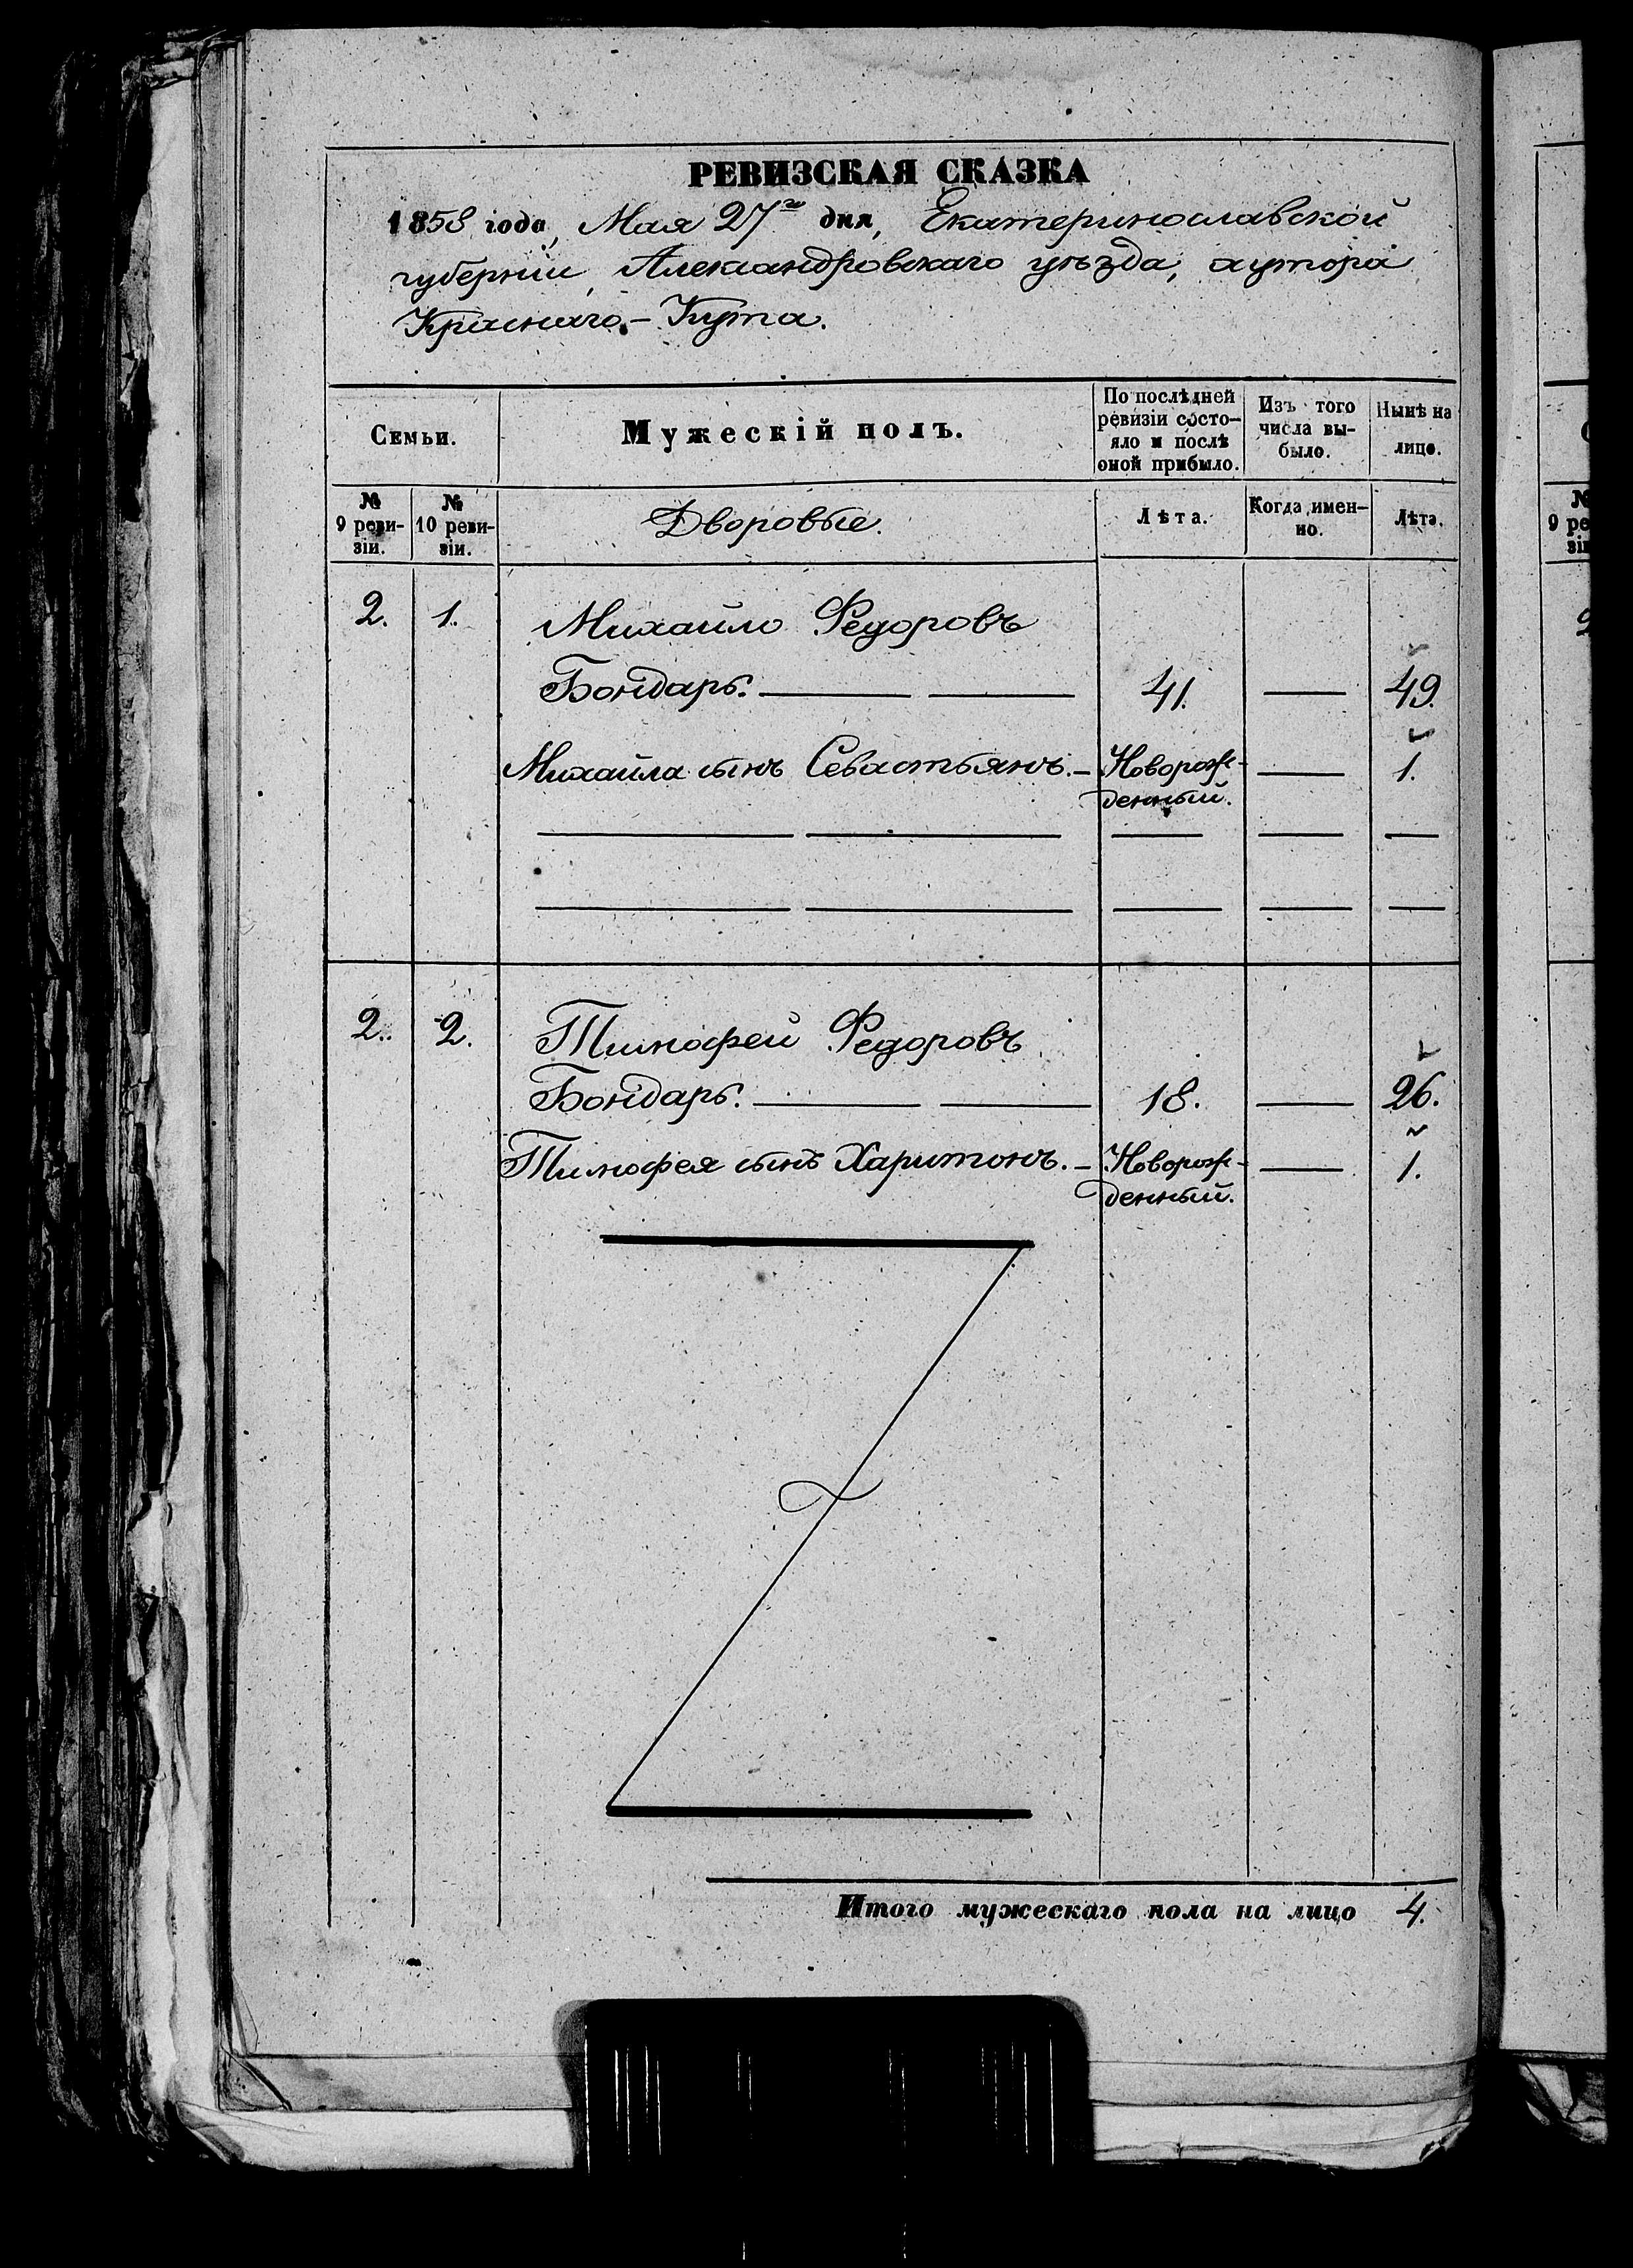 РЕВИЗСКАЯ СКАЗКА
1858 года, Мая 27го дня, Екатеринославской
губерніи, Александровскаго уѣзда, хутора
Краснаго-Кута.
Семьи.
Мужескій полъ.
По послѣдней
ревизіи состо-
яло и послѣ
оной прибыло.
Изъ того
числа вы-
было.
Нынѣ на
лицо.
№
9 реви-
зіи.
№
10 реви-
зіи.
Дворовые.
Лѣта.
Когда имен-
но.
Лѣта.
2. 1. Михайло Федоровъ
Бондарь. 41. 49.
Михайла сынъ Севастьянъ. - Новорож- 1.
денный.
2. 2. Тимофей Федоровъ
Бондарь. 18. 26.
Тимофея сынъ Харитонъ. - Новорож- 1.
денный.
Итого мужескаго пола на лицо 4.
№
9 ре
зі
2